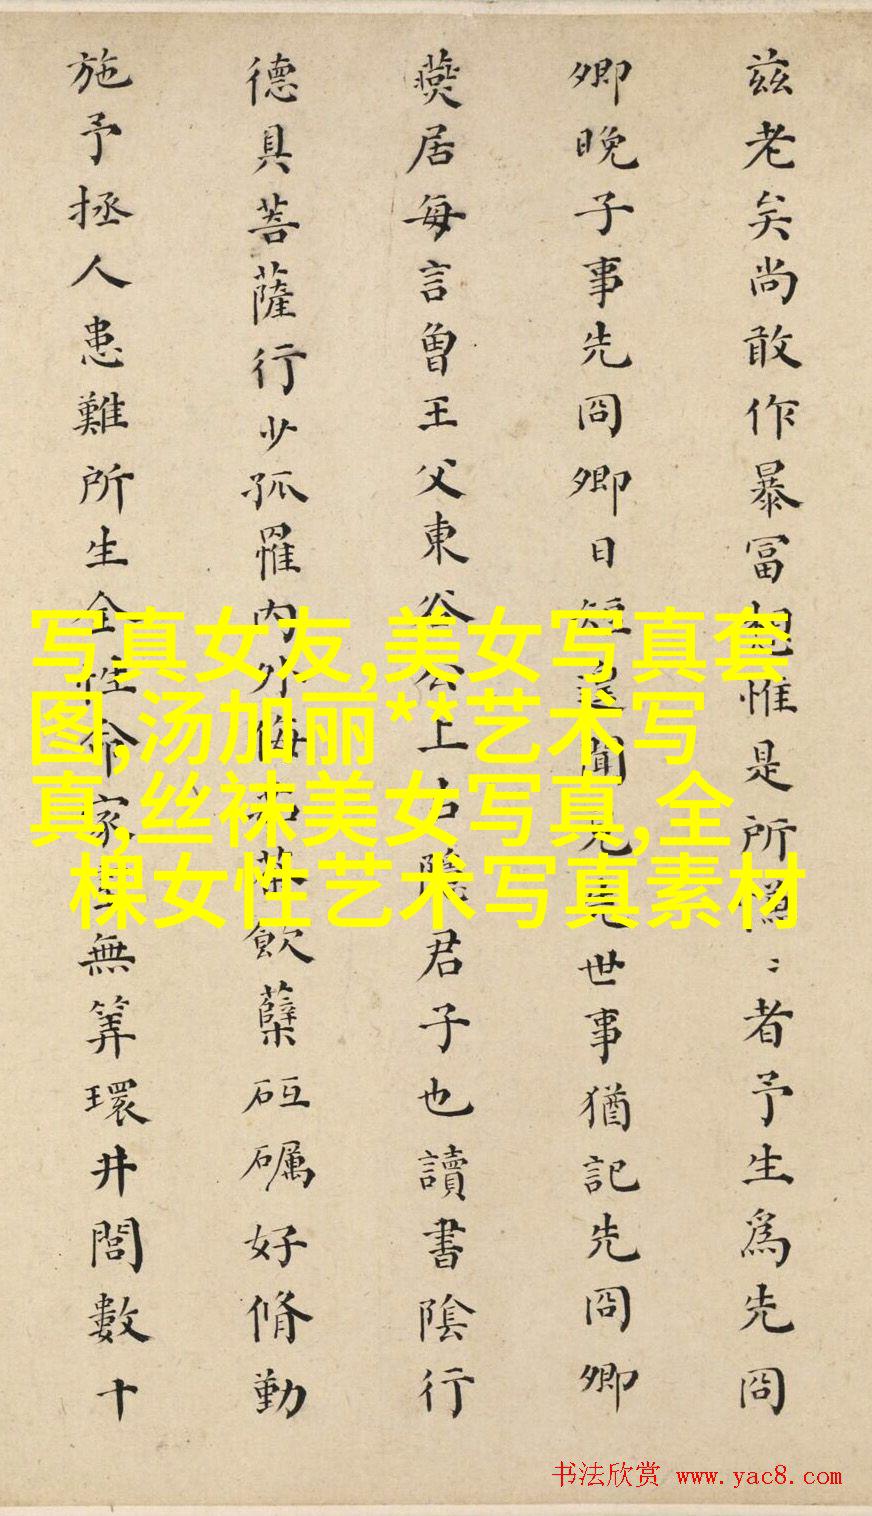 兹老矣尚敢作暴富想惟是所〻者予生爲先冏
卿晚子事先冏卿日短聞先世事猶記先冏卿
燕居每言曾王父東谷公上古隱君子也讀書陰行
德具菩薩行少孤罹内外侮茹荼飲蘖砥礪好脩勤
施予拯人患難所生全性命家無筭環井閭數十
写真女友,美女写真套
图,汤加丽**艺术写
真,丝袜美女写真,全
棵女性艺术写真素材
书法欣赏 www.yac8.com